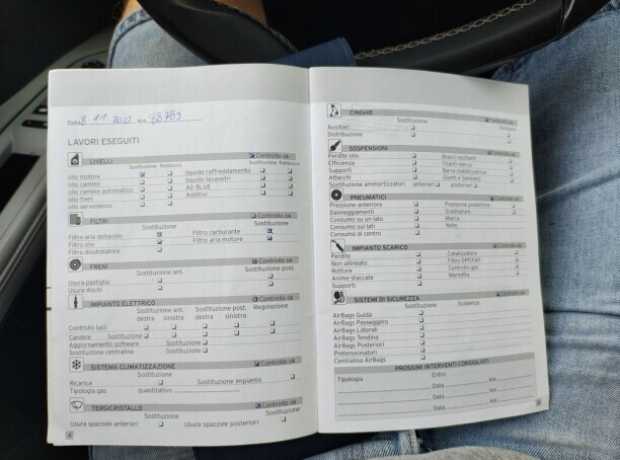 Data 8 11 2022 km
LAVORI ESEGUITI
LIVELLI Controllo ok
Sostituzione Rabbocco Sostituzione Rabbocco
Olio motore Liquido raffreddamento
Olio cambio Liquido lavavetri
Olio cambio automatico AD BLUE
Olio freni Additivi
Olio servosterzo
FILTRI Controllo ok
Sostituzione Sostituzione
Filtro aria abitacolo Filtro carburante
Filtro olio Filtro aria motore
Filtro disoleatore
FRENI Controllo ok
Sostituzione ant. Sostituzione post.
Usura pastiglie
Usura dischi
IMPIANTO ELETTRICO Controllo ok
Sostituzione ant. Sostituzione post. Regolazione
destra sinistra destra sinistra
Controllo luci
Candele Sostituzione
Aggiornamento software Sostituzione
Sostituzione centralina Sostituzione
SISTEMA CLIMATIZZAZIONE Controllo ok
Sostituzione
Ricarica Sostituzione impianto
Tipologia gas quantitativo
TERGICRISTALLO Controllo ok
Sostituzione Sostituzione
Usura spazzole anteriori Usura spazzole posteriori
CINGHIE Controllo ok
Sostituzione
Ausiliari
Distribuzione
SOSPENSIONI Controllo ok
Perdite olio Bracci oscillanti
Efficienza
Supporti Barra stabilizzatrice
Attacchi Giunti e tamponi
Sostituzione ammortizzatori anteriori posteriori
PNEUMATICI Controllo ok
Pressione anteriore Pressione posteriore
Danneggiamenti
Consumo su un lato Marca
Consumo sui lati Note
Consumo al centro
IMPIANTO SCARICO Controllo ok
Perdite Catalizzatore
Non allineato Filtro DPF/FAP
Rotture Controllo gas
Anime staccate Marmitta
Supporti
SISTEMI DI SICUREZZA Controllo ok
Sostituzione Scadenza
AirBags Guida
AirBags Passeggero
AirBags Laterali
AirBags Tendina
AirBags Posteriori
Pretensionatori
Centralina AirBags
PROSSIMI INTERVENTI CONSIGLIATI
Tipologia Entro
Data km
Data km
Data km